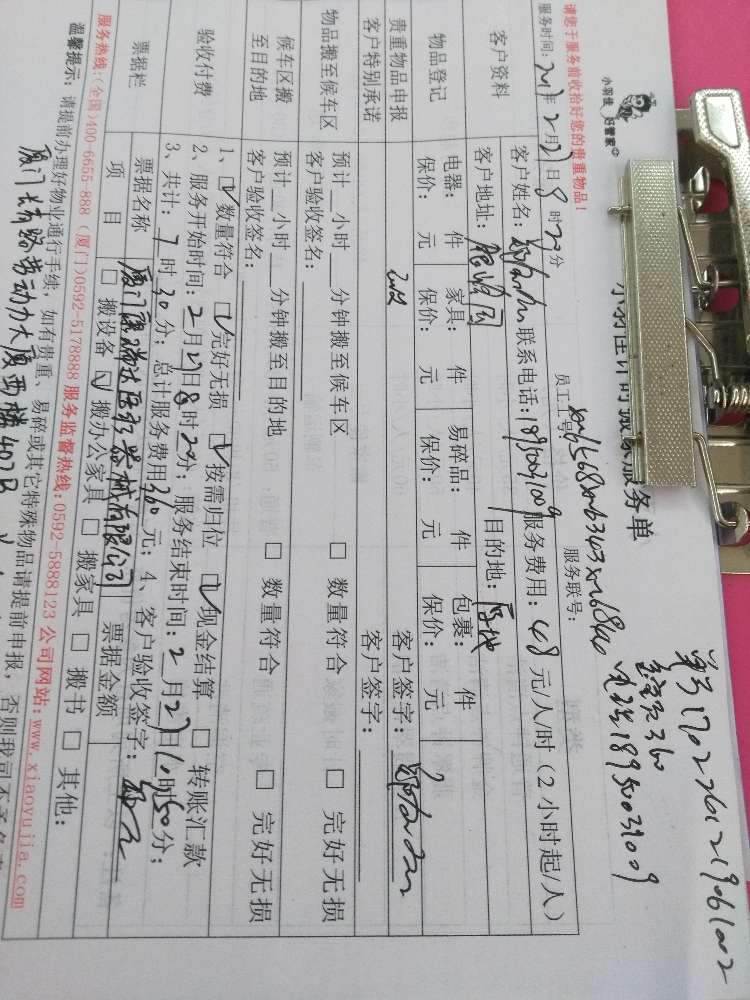 小羽佳 好管家
单号170226121906
服务单
请您于服务前收拾好您的贵重物品!
员工工号:
服务联号:
服务时间: 2017年2月27日8时20分
客户资料
客户姓名: 联系电话:18950031009 服务费用:48元/人/时(2小时起/人)
客户地址: 目的地:
物品登记
电器: 件 家具: 件 易碎品: 件 包裹: 件
保价: 元 保价: 元 保价: 元 保价: 元
贵重物品申报
客户特别承诺
客户签字:
客户签字:
物品搬至候车区
预计__小时__分钟搬至候车区 □ 数量符合 □ 完好无损
客户验收签名:
候车区搬
至目的地
预计__小时__分钟搬至目的地 □ 数量符合 □ 完好无损
客户验收签名:
验收付费
1、☑数量符合 ☑完好无损 ☑按需归位 ☑现金结算 □ 转账汇款
2、服务开始时间:2月27日8时20分;服务结束时间:2月27日10时50分;
3、共计:7时30分;总计服务费用360元;4、客户验收签字:
票据栏
票据名称 厦门 医疗器械有限公司 票据金额
项 目 □ 搬设备 ☑ 搬办公家具 □ 搬家具 □ 搬书 □ 其他:
服务热线:(全国)400-6655-888 (厦门)0592-5178888 服务监督热线:0592-5888123 公司网站:www.xiaoyujia.com
温馨提示: 请提前办理好物业通行手续,如有贵重、易碎或其它特殊物品请提前申报,否则我司不予负责
厦门 劳动力大厦西楼402B